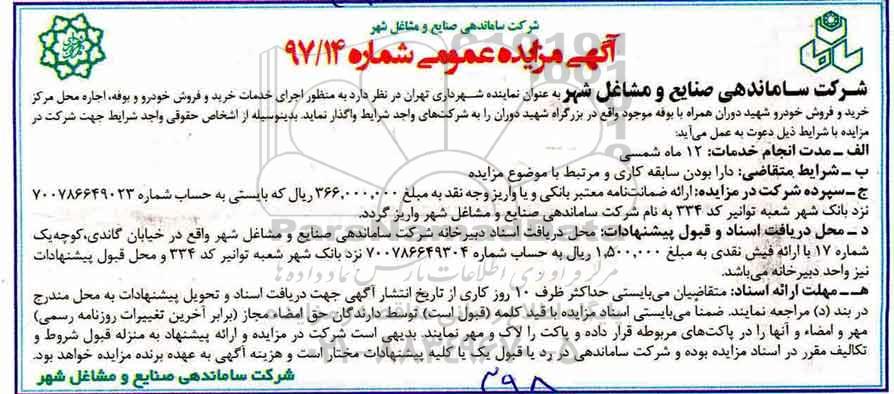 شرکت ساماندهی صنایع و مشاغل شهر
آگهی مزایده عمومی شماره ۹۷/۱۴
شرکت ساماندهی صنایع و مشاغل شهر به عنوان نماینده شهرداری تهران در نظر دارد به منظور اجرای خدمات خرید و فروش خودرو و بوفه، اجاره محل مرکز
خرید و فروش خودرو شهید دوران همراه با بوفه موجود واقع در بزرگراه شهید دوران را به شرکت‌های واجد شرایط واگذار نماید. بدینوسیله از اشخاص حقوقی واجد شرایط جهت شرکت در
مزایده با شرایط ذیل دعوت به عمل می‌آید:
الف ـ مدت انجام خدمات: ۱۲ ماه شمسی
ب ـ شرایط متقاضی: دارا بودن سابقه کاری و مرتبط با موضوع مزایده
ج ـ سپرده شرکت در مزایده: ارائه ضمانت‌نامه معتبر بانکی و یا واریز وجه نقد به مبلغ ۳۶۶,۰۰۰,۰۰۰ ریال که بایستی به حساب شماره ۷۰۰۷۸۶۶۴۹۰۲۳
نزد بانک شهر شعبه توانیر کد ۳۳۴ به نام شرکت ساماندهی صنایع و مشاغل شهر واریز گردد.
د ـ محل دریافت اسناد و قبول پیشنهادات: محل دریافت اسناد دبیرخانه شرکت ساماندهی صنایع و مشاغل شهر واقع در خیابان گاندی،کوچه‌یک
شماره ۱۷ با ارائه فیش نقدی به مبلغ ۱,۵۰۰,۰۰۰ ریال به حساب شماره ۷۰۰۷۸۶۶۴۹۳۰۴ نزد بانک شهر شعبه توانیر کد ۳۳۴ و محل قبول پیشنهادات
نیز واحد دبیرخانه می‌باشد.
هـ ـ مهلت ارائه اسناد: متقاضیان می‌بایستی حداکثر ظرف ۱۰ روز کاری از تاریخ انتشار آگهی جهت دریافت اسناد و تحویل پیشنهادات به محل مندرج
در بند (د) مراجعه نمایند. ضمناً می‌بایستی اسناد مزایده با قید کلمه (قبول است) توسط دارندگان حق امضاء مجاز (برابر آخرین تغییرات روزنامه رسمی)
مهر و امضاء و آنها را در پاکت‌های مربوطه قرار داده و پاکت را لاک و مهر نمایند. بدیهی است شرکت در مزایده و ارائه پیشنهاد به منزله قبول شروط و
تکالیف مقرر در اسناد مزایده بوده و شرکت ساماندهی در رد یا قبول یک یا کلیه پیشنهادات مختار است و هزینه آگهی به عهده برنده مزایده خواهد بود.
شرکت ساماندهی صنایع و مشاغل شهر
۳۹۸